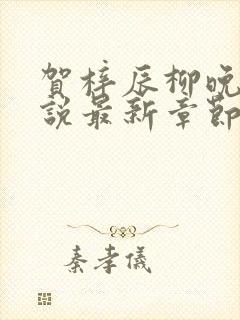 賀梓辰柳晚
說最新章節
秦孝儀